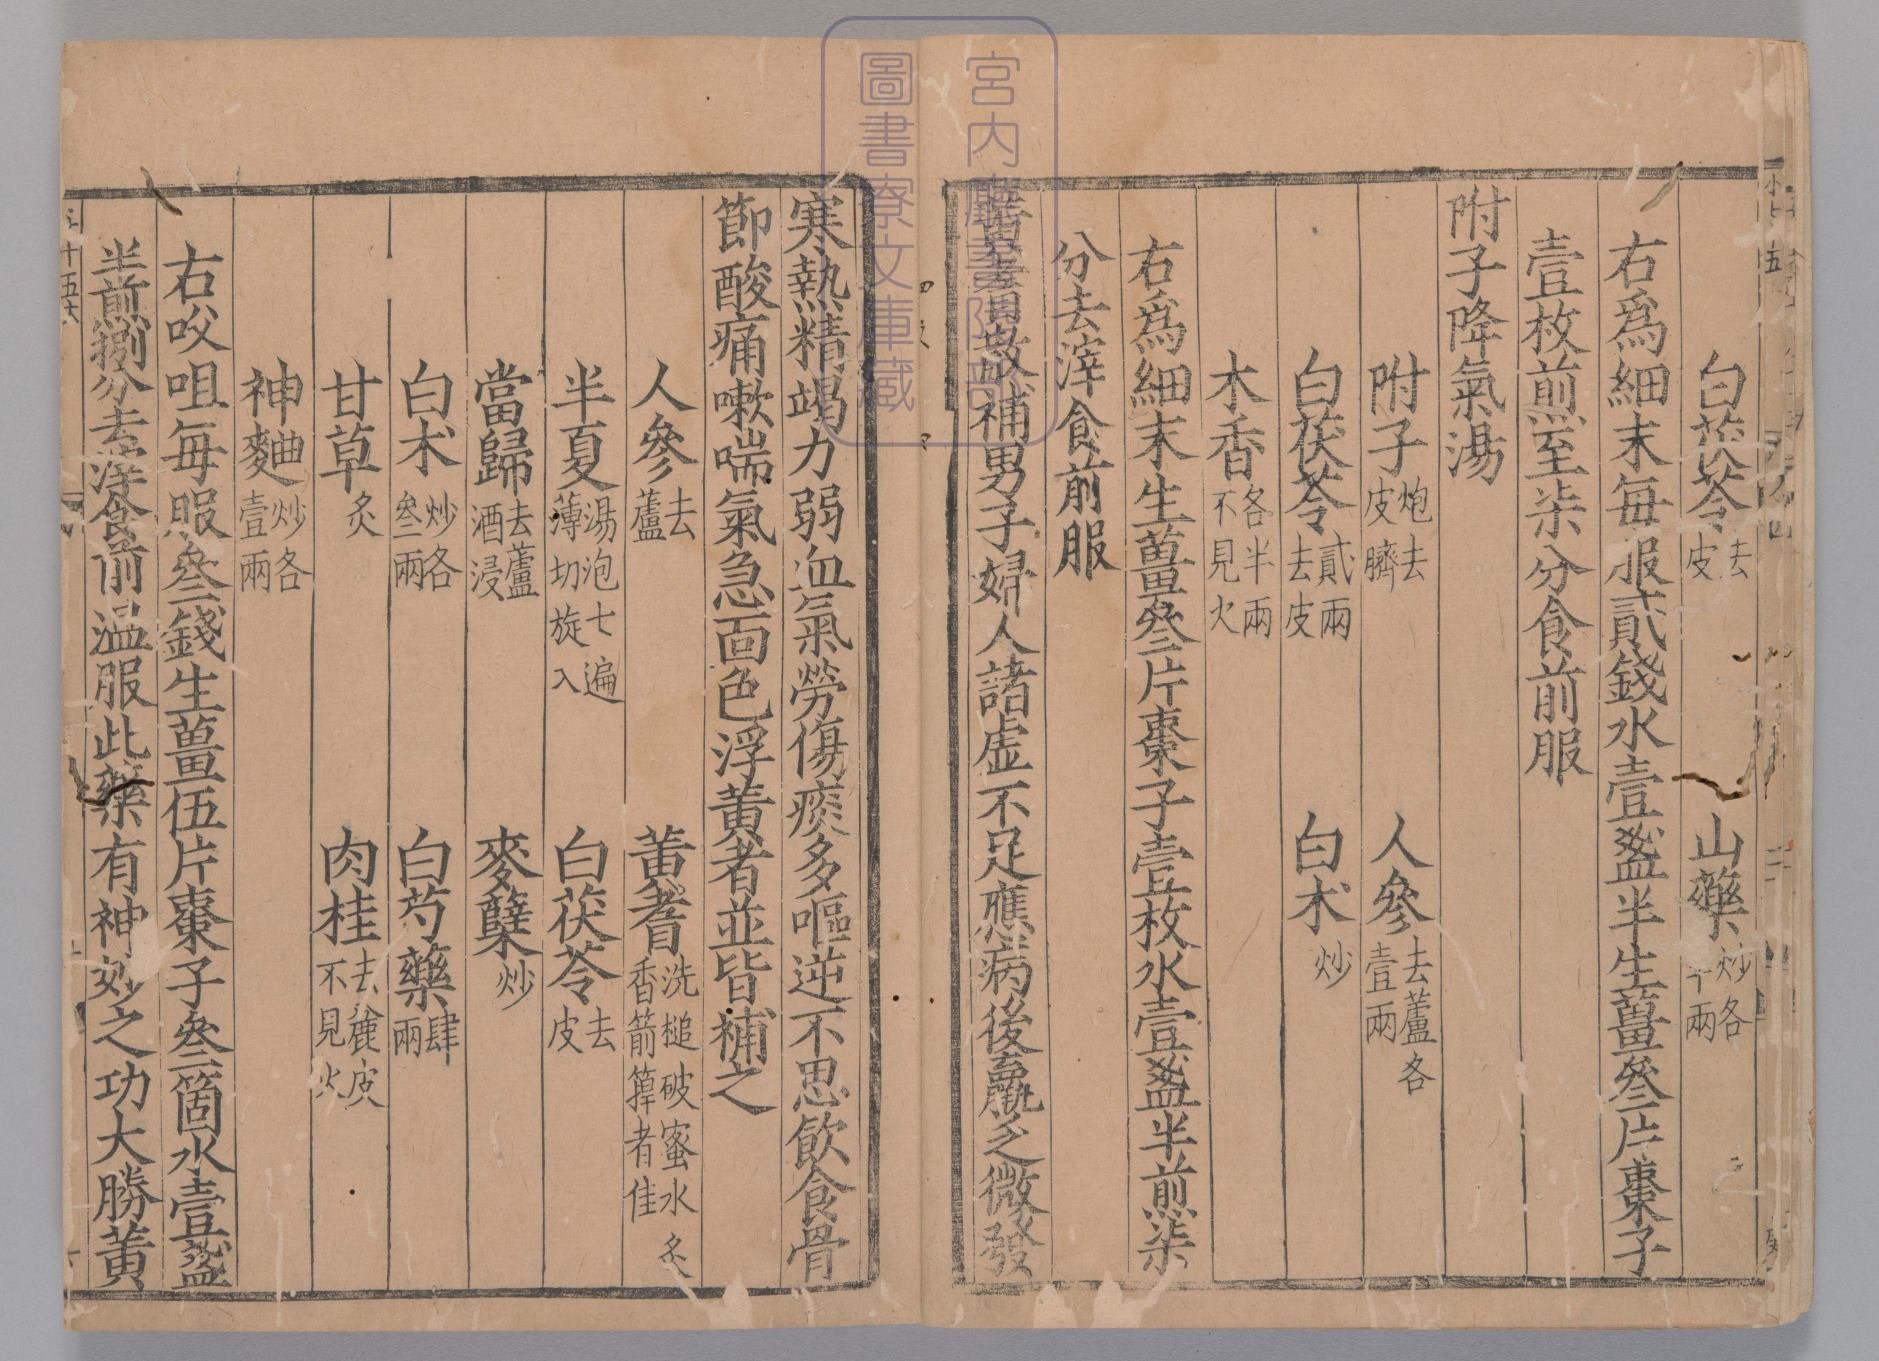 白茯苓去皮 山藥炒各半兩
右爲細末每服貳錢水壹盞半生薑叁片棗子
壹枚煎至柒分食前服
附子降氣湯
附子炮去皮臍 人參去蘆各壹兩
白茯苓貳兩去皮 白朮炒
木香各半兩不見火
右爲細末生薑叁片棗子壹枚水壹盞半煎柒
分去滓食前服
補男子婦人諸虛不足應病後羸乏微發
寒熱精竭力弱血氣勞傷痰多嘔逆不思飲食骨
節酸痛嗽喘氣急面色浮黃者並皆補之
人參去蘆 黃耆洗槌破蜜水炙香箭簳者佳
半夏湯泡七遍薄切旋入 白茯苓去皮
當歸去蘆酒浸 麥糵炒
白朮炒各叁兩 白芍藥肆兩
甘草炙 肉桂去麄皮不見火
神麴炒各壹兩
右㕮咀每服叁錢生薑伍片棗子叁箇水壹盞
半煎捌分去滓食前溫服此藥有神妙之功大勝黃
宮內廳書陵部
圖書寮文庫藏